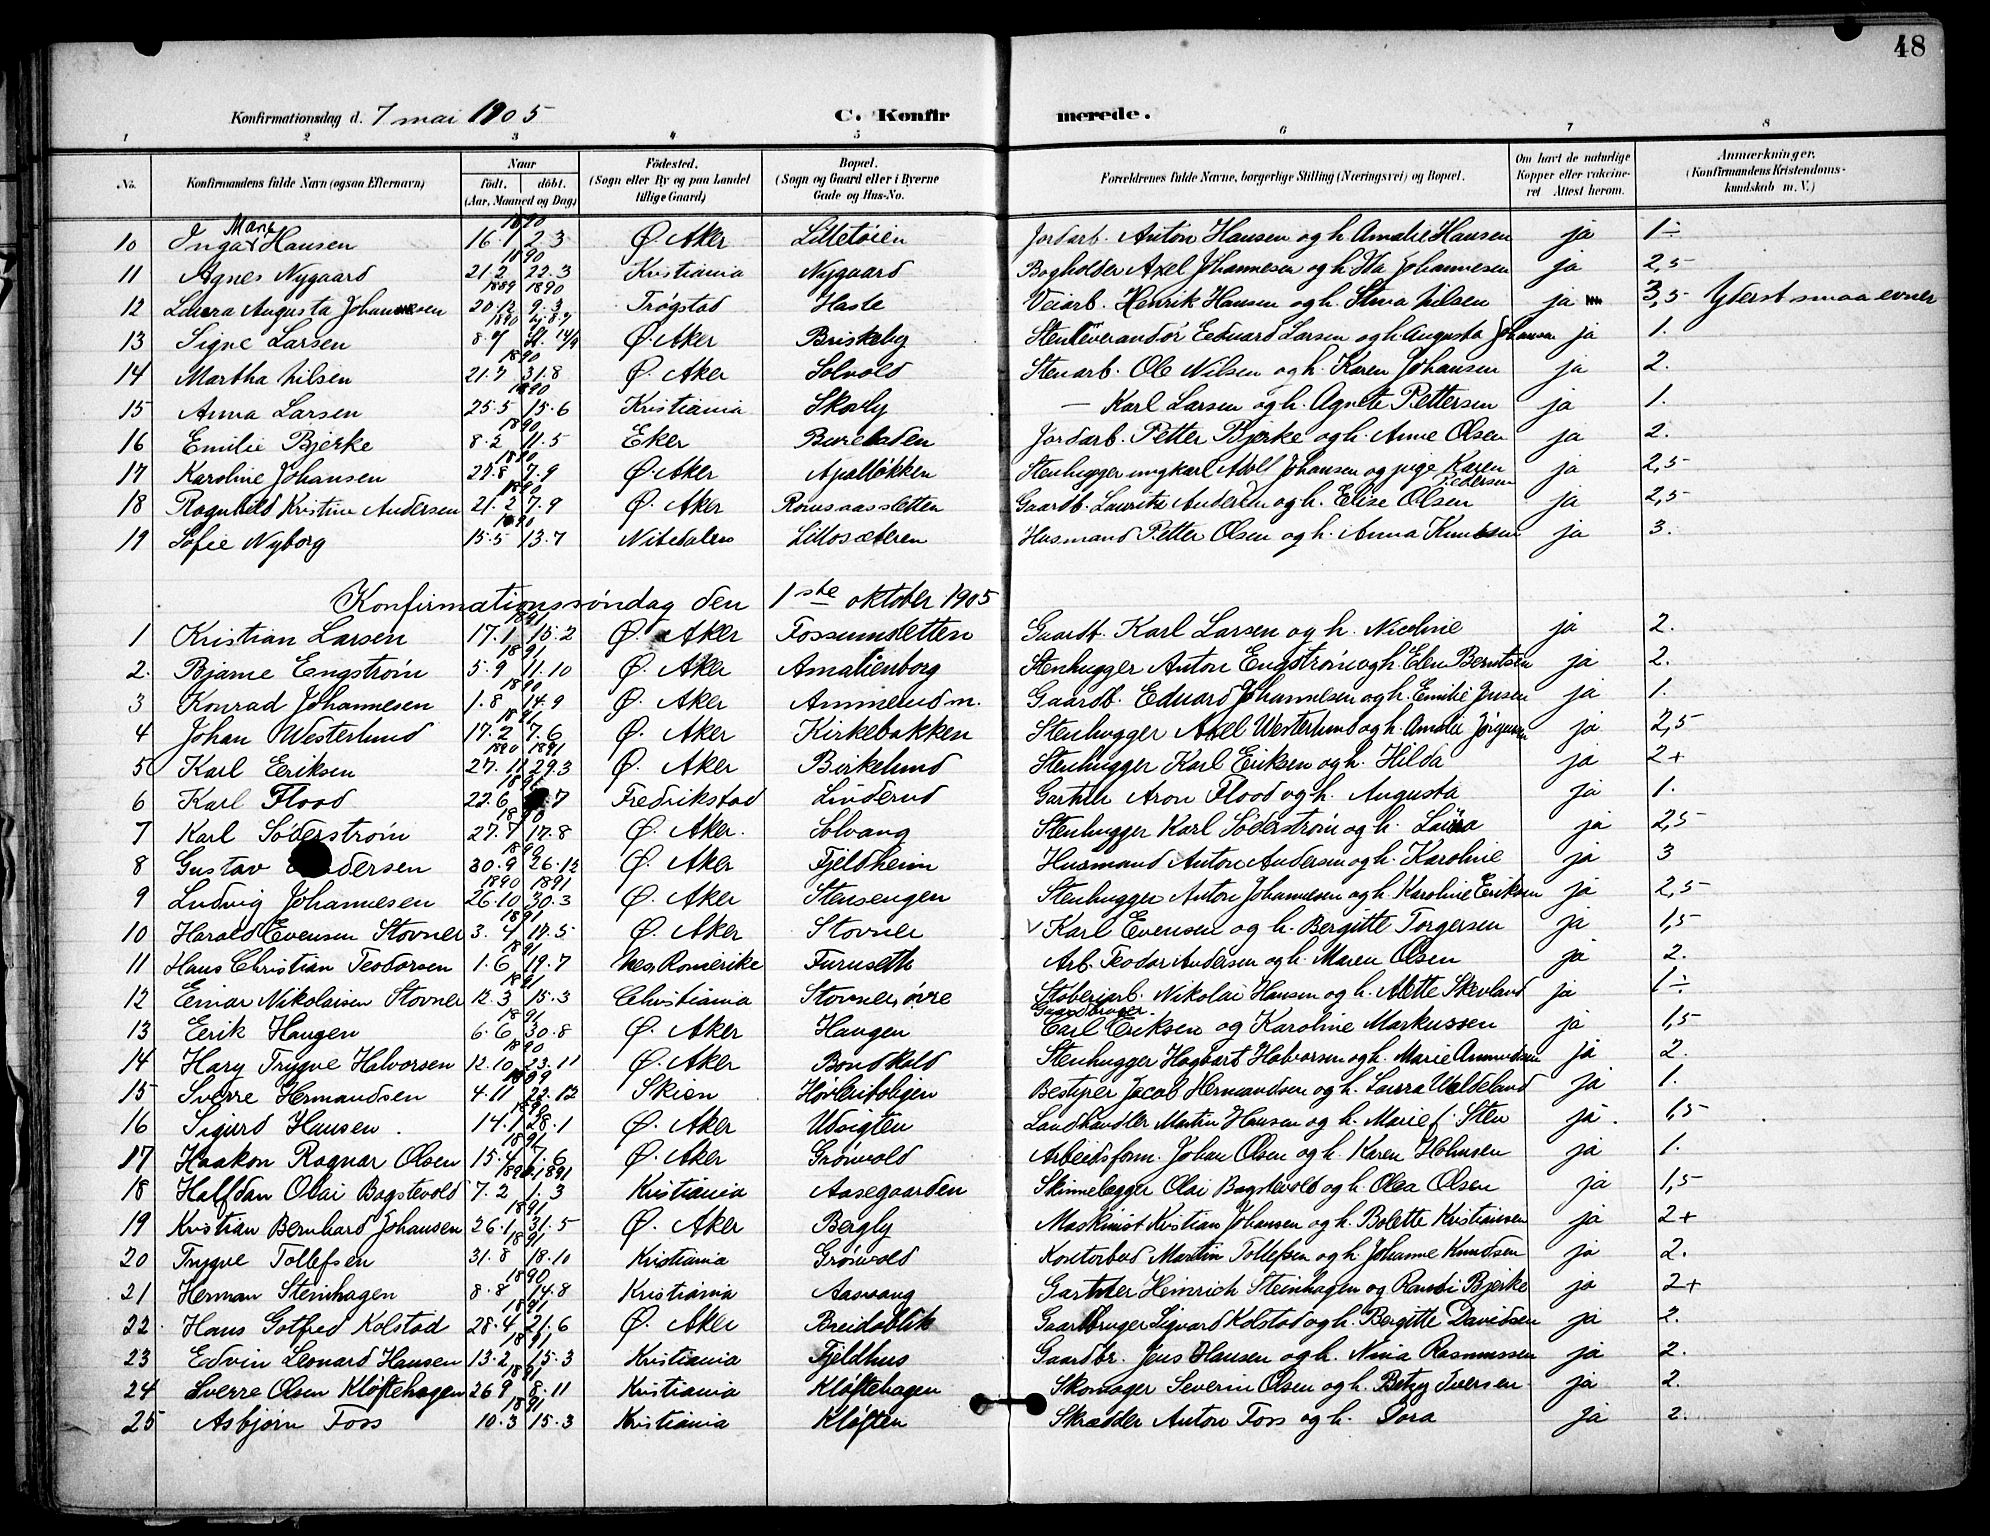 48
Konfirmationsdag d. 7 mai 1905 C. Konfirmerede.
1 2 3 4 5 6 7 8
No. Konfirmandens fulde Navn (ogsaa Efternavn) Naar født. døbt. (Aar, Maaned og Dag) Fødested. (Sogn eller By og paa Landet tillige Gaard) Bopæl. (Sogn og Gaard eller i Byerne Gade og Hus-No. Forældrenes fulde Navne, borgerlige Stilling (Næringsvei) og Bopæl. Om havt de naturlige Kopper eller vaccineret Attest herom. Anmærkninger. (Konfirmandens Kristendomskundskab m. V.)
10 Inga Marie Hansen 1890 16.1 2.3 Ø. Aker Lilletøien Jordarb. Anton Hansen og h. Amalie Hansen ja 1÷
11 Agnes Nygaard 1890 21.2 22.3 Kristiania Nygaard Bogholder Axel Johannesen og h. Ida Johannesen ja 2,5
12 Laura Augusta Johannesen 1889 1890 20.12 9.3 Trøgstad Hasle Veiarb. Henrik Hansen og h. Stina Nilsen ja 3,5 Yderst smaa evner
13 Signe Larsen 1890 8.7 14/9 Ø. Aker Briskeby Stenleverandør Edvard Larsen og h. Augusta Johansen ja 1.
14 Martha Nilsen 1890 21.7 31.8 Ø. Aker Solvold Stenarb. Ole Nilsen og h. Karen Johansen ja 2.
15 Anna Larsen 1890 25.5 15.6 Kristiania Skovly — Karl Larsen og h. Agnete Pettersen ja 1.
16 Emilie Bjerke 1890 8.2 11.5 Eker Bureladen Jordarb. Petter Bjerke og h. Anne Olsen ja 2.
17 Karoline Johansen 1890 29.8 7.9 Ø. Aker Apalløkken Stenhugger ungkarl Adolf Johansen og pige Karen Pedersen ja 2,5
18 Ragnhild Kristine Andersen 1890 21.2 7.9 Ø. Aker Romsaassletten Gaardb. Lauritz Andersen og h. Elise Olsen ja 2,5
19 Sofie Nyborg 1890 15.5 13.7 Nitedalen Lillosæteren Husmand Petter Olsen og h. Anna Knudsen ja 3.
Konfirmationssøndag den 1ste oktober 1905
1 Kristian Larsen 1891 17.1 15.2 Ø. Aker Fossumsletten Gaardb. Karl Larsen og h. Nicoline ja 2.
2. Bjarne Engstrøm 1891 5.9 11.10 Ø. Aker Amalienborg Stenhugger Anton Engstrøm og h. Elen Berntsen ja 2.
3 Konrad Johannesen 1890 1.8 14.9 Ø. Aker Ammerud m. Gaardb. Eduard Johannesen og h. Emilie Jensen ja 1.
4 Johan Westerlund 1891 17.2 7.6 Ø. Aker Kirkebakken Stenhugger Axel Westerlund og h. Amalie Jørgensen ja 2,5
5 Karl Eriksen 1890 1891 27.11 29.3 Ø. Aker Birkelund Stenhugger Karl Eriksen og h. Hilda ja 2+
6 Karl Flood 22.6 7 Fredrikstad Linderud Gartner Aron Flood og h. Augusta ja 1.
7 Karl Söderstrøm 1890 27.7 17.8 Ø. Aker. Solvang Stenhugger Karl Söderstrøm og h. Laura ja 2,5
8 Gustav Andersen 1890 30.9 26.12 Ø. Aker Fjeldheim Husmand Anton Andersen og h. Karoline ja 3
9 Ludvig Johannesen 1890 1891 26.10 30.3 Ø. Aker Stensengen Stenhugger Anton Johannesen og h. Karoline Eriksen ja 2,5
10 Harald Evensen Stovner 1891 3.4 17.5 Ø. Aker Stovner Karl Evensen og h. Bergitte Torgersen ja 1,5
11 Hans Christian Teodorsen 1891 1.6 19.7 Nes Romerike Furuseth Arb. Teodor Andersen og h. Maren Olsen ja 2.
12 Einar Nikolaisen Stovner 1891 12.3 15.3 Christiania Stovner øvre Støberiarb. Nikolai Hansen og h. Alette Skevland ja 1÷
13 Eerik Haugen 1891 6.6 30.8 Ø. Aker Haugen Gaardbruger Carl Eriksen og Karoline Markussen ja 1,5
14 Hary Trygve Halvorsen 1890 12.10 23.11 Ø. Aker Bondkald Stenhugger Hagbart Halvorsen og h. Marie Amundsen ja 2.
15 Sverre Hermandsen 1889 4.11 22.12 Skien Høilenboligen Bestyrer Jacob Hermandsen og h. Laura Waldeland ja 1.
16 Sigurd Hansen. 1890 14.1 28.1 Ø. Aker Udsigten Landhandler Martin Hansen og h. Marie f. Sten ja. 1,5
17 Haakon Ragnar Olsen 1891 15.4 7.6 Ø. Aker Grønvold Arbeidsform. Johan Olsen og h. Karen Holmsen ja 1.
18 Halfdan Olai Bagstevold 1890 1891 7.2 1.3 Kristiania Aasegaarden Skinnelegger Olai Bagstevold og h. Olea Olsen ja 1,5
19 Kristian Bernhard Johansen 1891 26.1 31.5 Ø. Aker Bergly Maskinist Kristian Johansen og h. Bolette Kristiansen ja 2+
20 Trygve Tollefsen 1891 31.8 18.10 Kristiania Grønvold Kontorbud Martin Tollefsen og h. Johanne Knudsen ja 2.
21 Herman Steinhagen 1890 8.8 14.8 Kristiania Aasvang Gartner Heinrich Steinhagen og Randi Bjerke ja 2+
22. Hans Gotfred Kolstad 1891 28.4 21.6 Ø. Aker Breidablik Gaardbruger Sigvard Kolstad og h. Bergitte Davidsen ja 2.
23 Edvin Leonard Hansen 1891 13.2 15.3 Kristiania Fjeldhus Gaardbr. Jens Hansen og h. Nina Rasmussen ja 2.
24 Sverre Olsen Kløftehagen 1891 26.9 8.11 Kristiania Kløftehagen Skomager Severin Olsen og h. Betzy Iversen ja 2.
25 Asbjørn Foss 1891 10.3 15.3 Kristiania Kløften Skrædder Anton Foss og h. Dora ja 2.